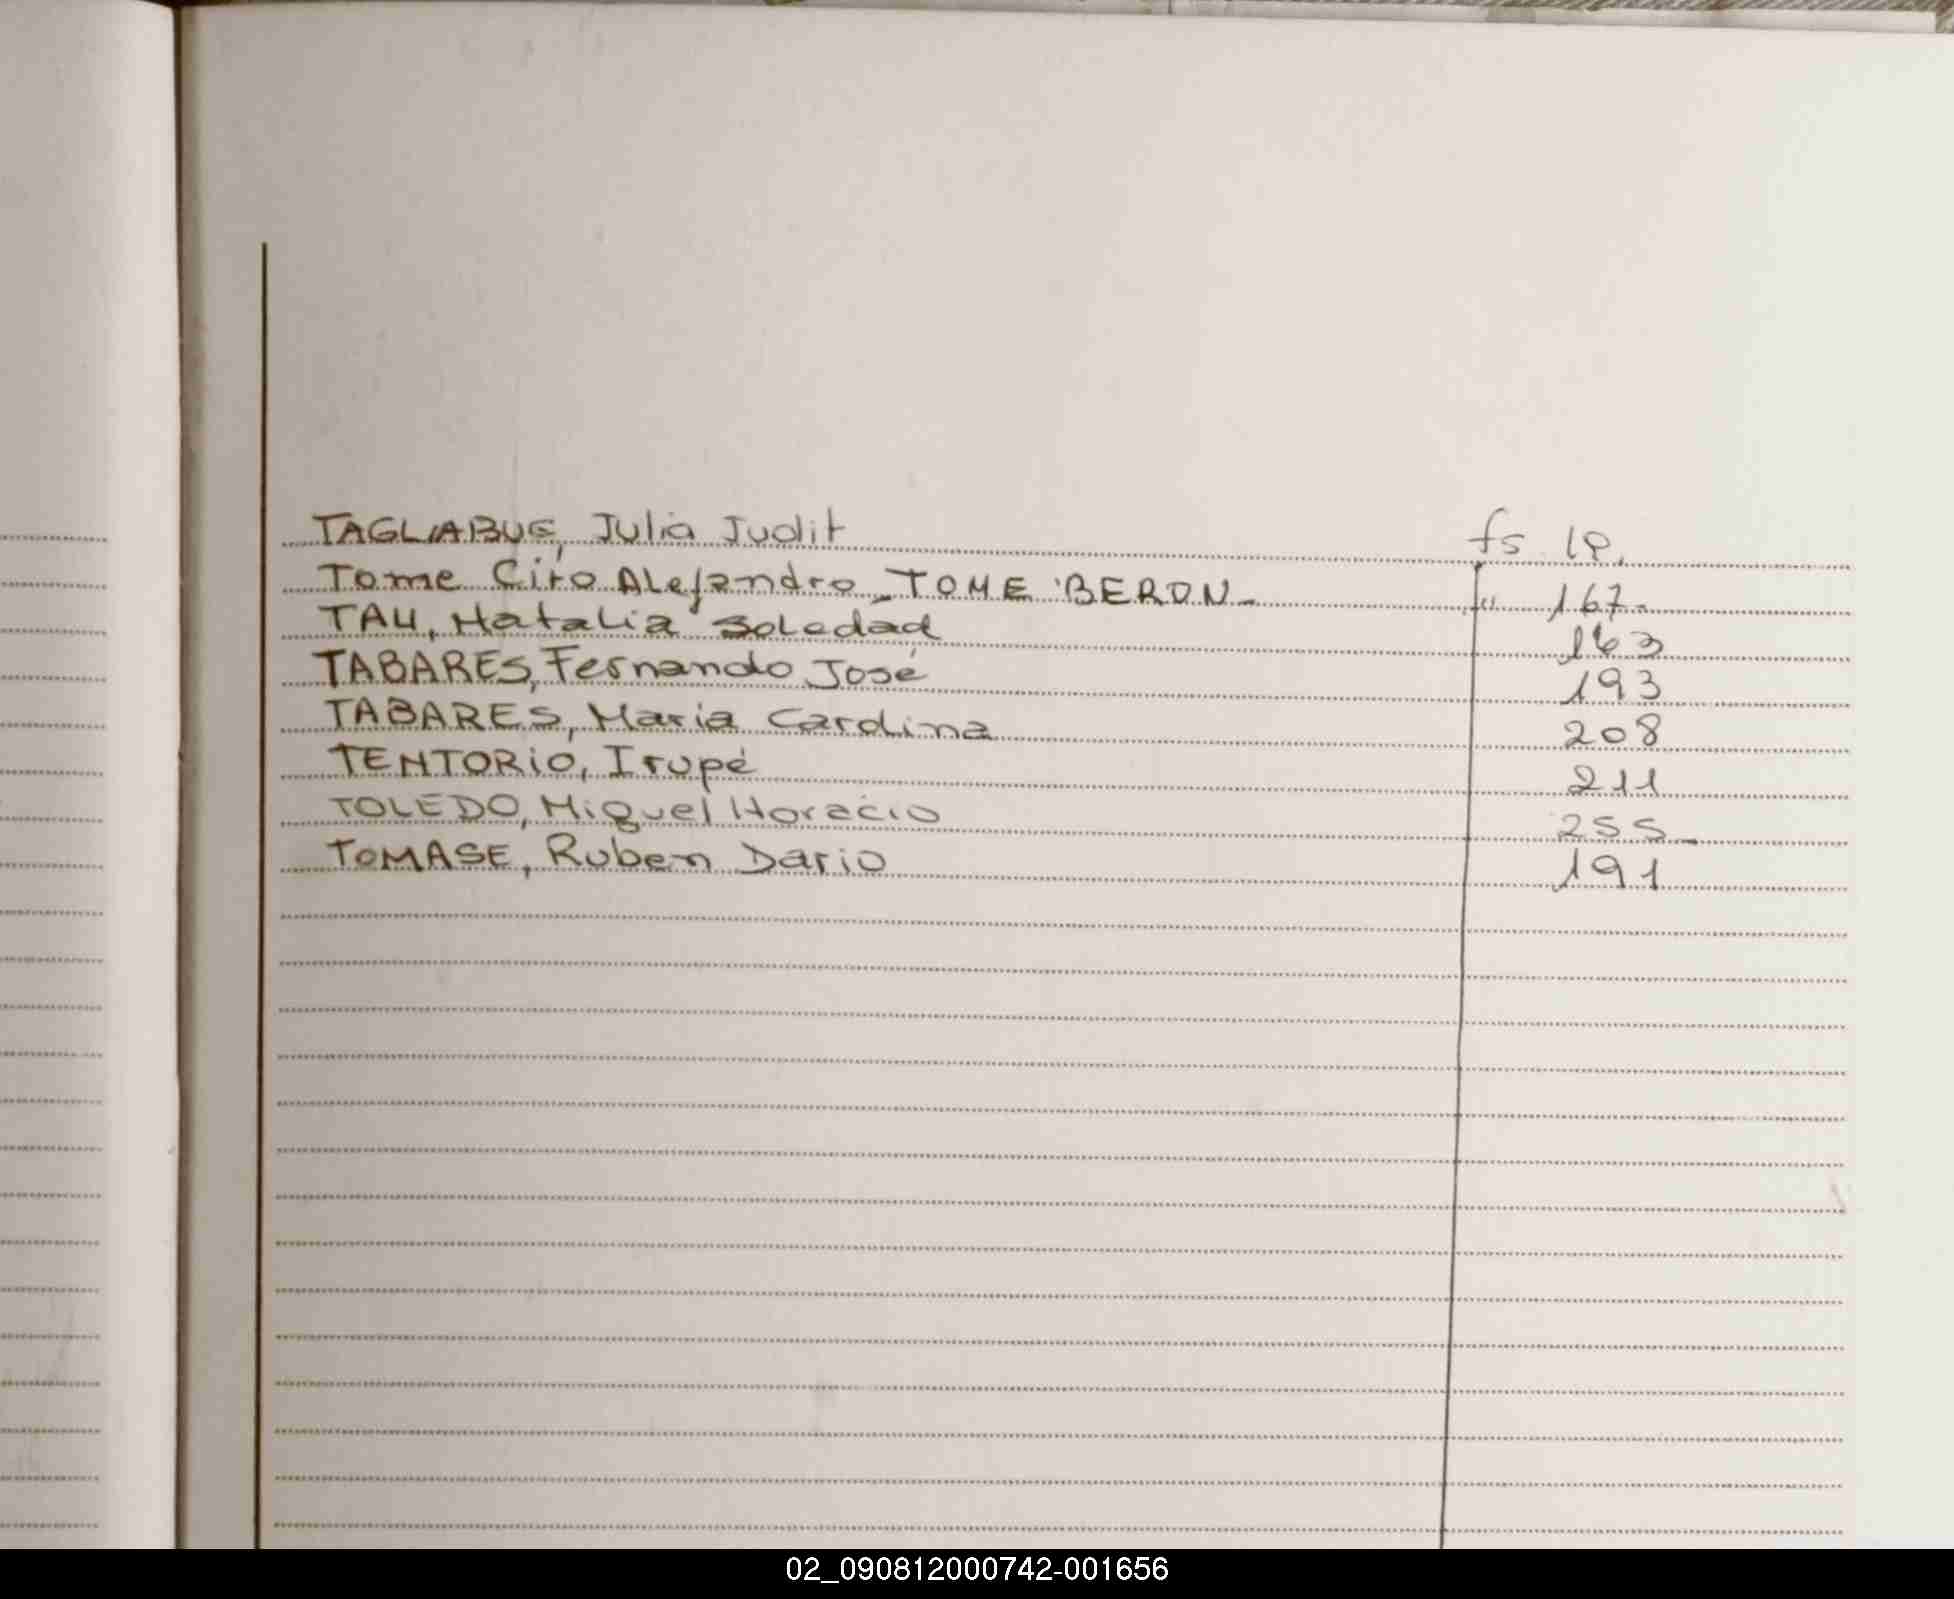 TAGLIABUE, Julia Judit fs
Tome Ciro Alejandro - TOME BERON - 167-
TAU, Natalia Soledad 163
TABARES, Fernando José 193
TABARES, Maria Cardina 208
TENTORIO, Irupé 211
TOLEDO, Miguel Horacio 255-
TOMASE, Ruben Dario 191
02_090812000742-001656